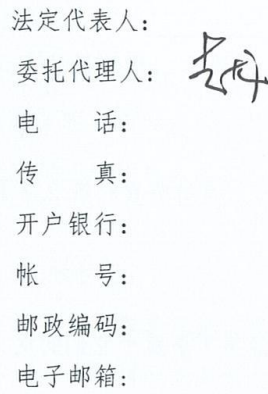 法定代表人：
委托代理人：
电 话：
传 真：
开户银行：
帐 号：
邮政编码：
电子邮箱：